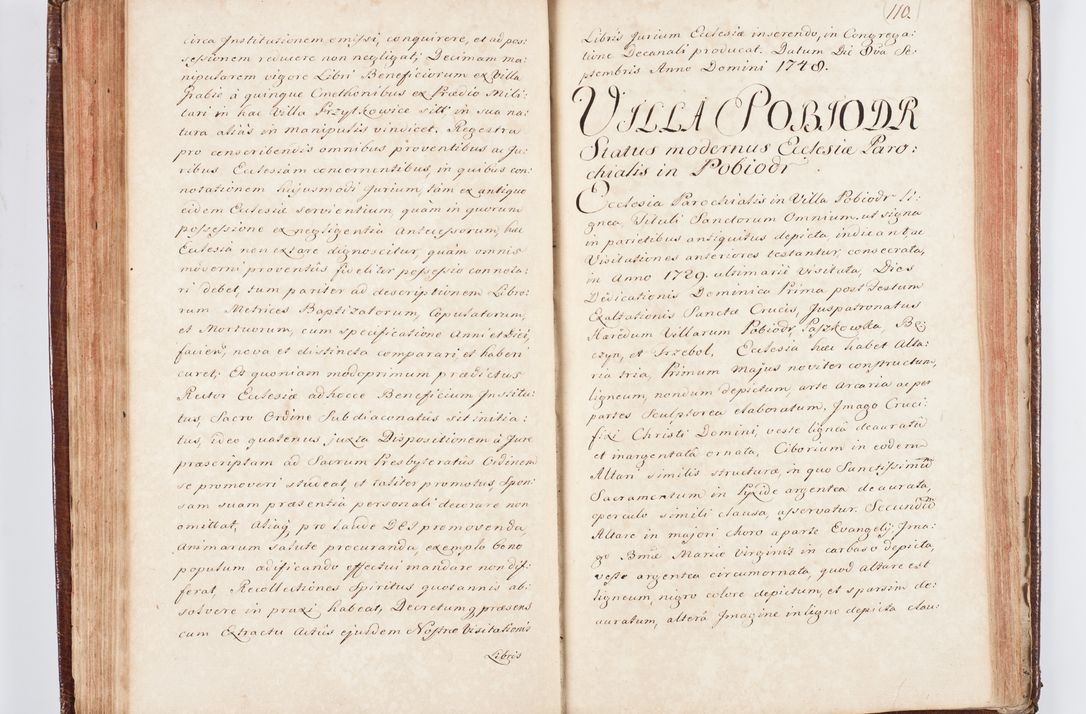 circa Institutionem emissi, conquirere, et ad pos:
sessionem reducere non negligat, Decimam ma:
nipularem vigore Libri Beneficiorum ex Villa
Grabie à quinque Cmethonibus ex Prædio Mili:
tari in hac Villa Przytkowice sitt in sua na:
tura alias in manipulis vindicet. Regestra
pro conscribendis omnibus proventibus ac Ju:
ribus Ecclesiam concernentibus, in quibus con:
notationem hujusmodi Jurium, tam ex antiquo
eidem Ecclesiæ servientium, quàm in quorum
possessione ex negligentia Antecessorum, hæc
Ecclesia non extare dignoscitur, quàm omnis
moderni proventus fideliter possessio connota:
ri debet, tum pariter ad descriptionem Libro:
rum Metrices Baptizatorum, Copulatorum,
et Mortuorum, cum specificatione Anni et Diei,
faciend, nova et distincta comparari et haberi
curet; Et quoniam modoprimum prædictus
Rector Ecclesiæ ad hocce Beneficium Institu:
tus, Sacro Ordine Subdiaconatus sit initia:
tus, ideo quatenus, juxta Dispositionem à Jure
præscriptam ad Sacrum Presbyteratus Ordinem
se promoveri studeat, et taliter promotus, Spon:
sam suam præsentia personali decorare non
omittat, Aliaq, pro Laude DEI promovenda,
Animarum salute procuranda, exemplo bono
populum ædificando effectui mandare non dif:
ferat, Recollectiones Spiritus quotannis ab:
solvere in praxi habeat, Decretumq præsens
cum Extractu Actus ejusdem Nostræ Visitationis
Libris
110.
Libris Jurium Ecclesiæ inserendo, in Congrega:
tione Decanali producat. Datum Die 8va Se:
ptembris Anno Domini 1748.
VILLA POBIODR
Status modernus Ecclesiæ Paro:
chialis in Pobiodr.
Ecclesia Parochialis in Villa Pobiodr li:
gnea, Tituli Sanctorum Omnium, ut signa
in parietibus antiquitus depicta, indicant, ac
Visitationes anteriores testantur, consecrata,
in Anno 1729. ultimarie Visitata, Dies
Dedicationis Dominica Prima post Festum
Exaltationis Sanctæ Crucis, Juspatronatus
Hæredum Villarum Pobiodr, Paszkowka, Bę:
czyn, et Trzebol, Ecclesia hæc habet Alta:
ria tria, Primum Majus noviter constructum,
ligneum, nondum depictum, arte arcaria ac per
partes Sculptorea elaboratum. Imago Cruci:
fixi Christi Domini, veste ligneâ deauratâ
et inargentatâ ornata, Ciborium in eodem
Altari similis structuræ, in quo Sanctissimũ
Sacramentum in Pyxide argentea deaurata,
operculo simili clausa, asservatur. Secundũ
Altare in majori choro a parte Evangelij, Ima:
go Bmæ Mariæ Virginis in carbaso depicta,
veste argentea circumornata, quod altare est
ligneum, nigro colore depictum, et sparsim de:
auratum, alterâ Imagine in ligno depicta clau: